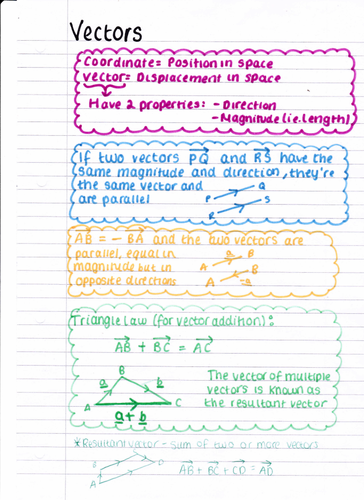 Vectors
Coordinate = Position in space
vector = Displacement in space
Have 2 properties: - Direction
- Magnitude (i.e. length)
If two vectors PQ⃗ and RS⃗ have the
same magnitude and direction, they're
the same vector and
are parallel
P Q
R S
AB⃗ = - BA⃗ and the two vectors are
parallel, equal in
magnitude but in
opposite directions
A a B
A -a B
Triangle Law (for vector addition):
AB⃗ + BC⃗ = AC⃗
B
a b
A C
a + b
The vector of multiple
vectors is known as
the resultant vector
*Resultant vector - sum of two or more vectors
B D
A
AB⃗ + BC⃗ + CD⃗ = AD⃗